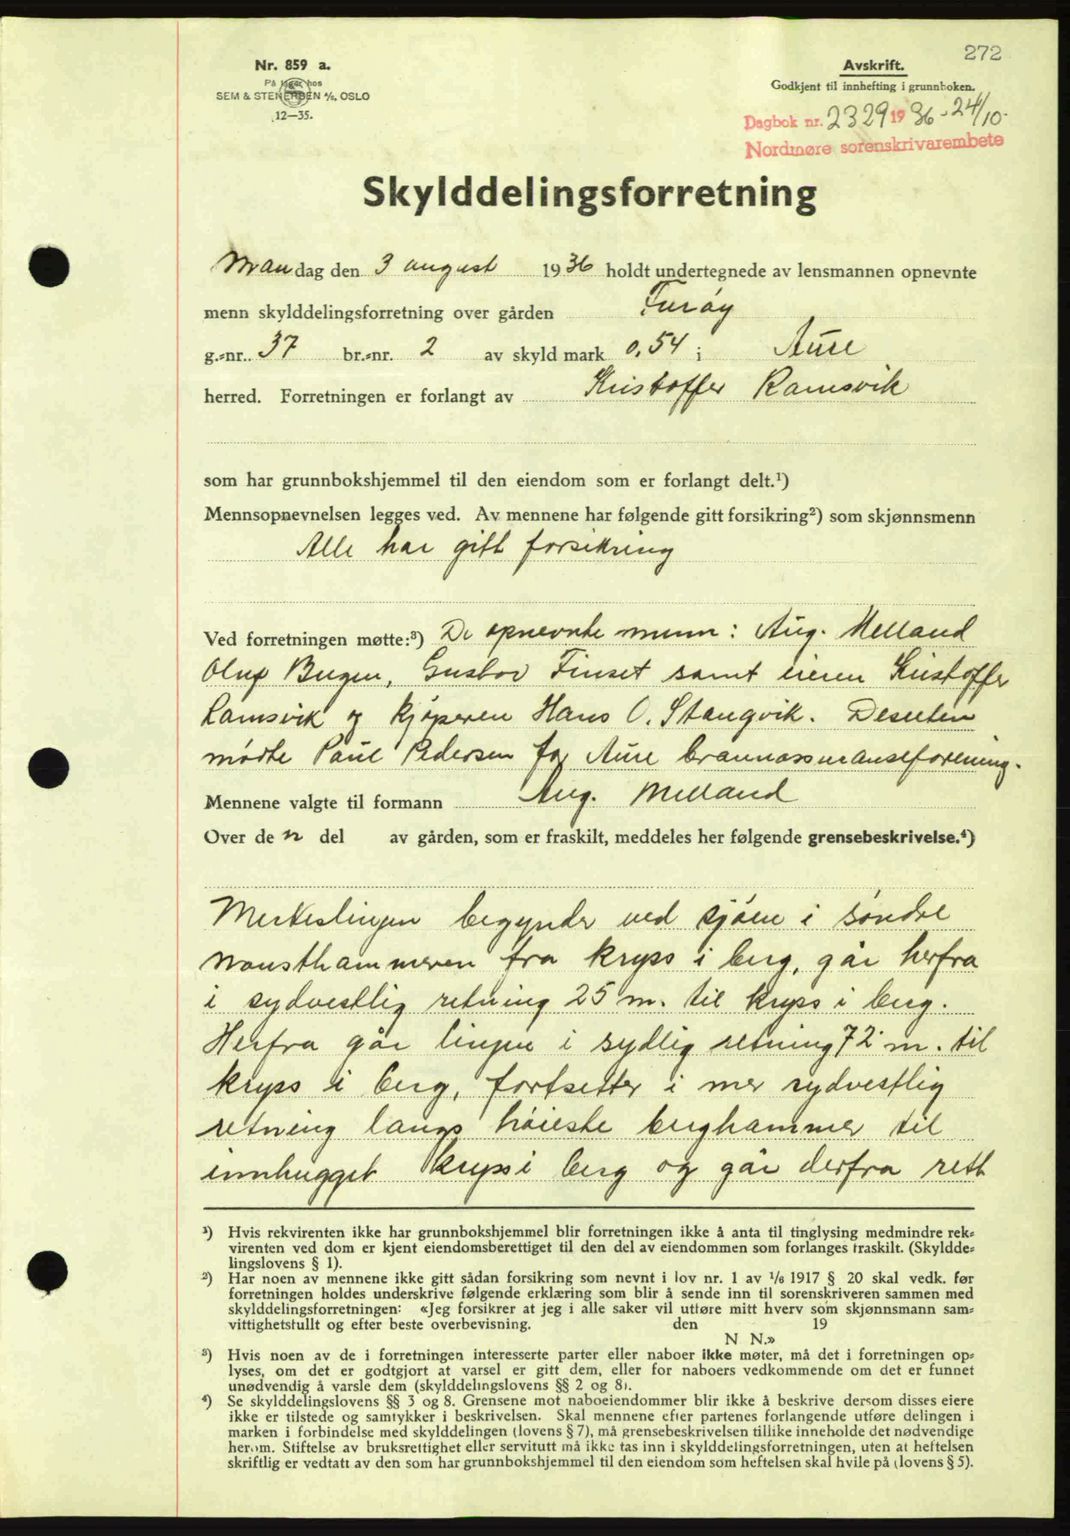 272
Nr. 859 a.
På lager hos
SEM & STENERSEN A/S, OSLO
12—35.
Avskrift.
Godkjent til innhefting i grunnboken.
Dagbok nr. 2329 1936 - 24/10-
Nordmøre sorenskrivarembete
Skylddelingsforretning
Mandag den 3 august 1936 holdt undertegnede av lensmannen opnevnte
menn skylddelingsforretning over gården Furöy
g.-nr. 37 br.-nr. 2 av skyld mark 0,54 i Aure
herred. Forretningen er forlangt av Kristoffer Ramsvik
som har grunnbokshjemmel til den eiendom som er forlangt delt.¹)
Mennsopnevnelsen legges ved. Av mennene har følgende gitt forsikring²) som skjønnsmenn
Alle har gitt forsikring
Ved forretningen møtte:³) De opnevnte menn: Aug. Melland
Oluf Bugen, Gustav Finset samt eieren Kristoffer
Ramsvik og kjöperen Hans O. Stangvik. Desuten
mödte Paul Pedersen for Aure brannassuranseforening.
Mennene valgte til formann Aug. Melland
Over den del av gården, som er fraskilt, meddeles her følgende grensebeskrivelse.⁴)
Merkeslinjen begynder ved sjöen i söndre
nausthammeren fra kryss i berg, går herfra
i sydvestlig retning 25 m. til kryss i berg.
Herfra går linjen i sydlig retning 72 m. til
kryss i berg, fortsetter i mer sydvestlig
retning langs höieste berghammer til
innhugget kryss i berg og går derfra rett
¹) Hvis rekvirenten ikke har grunnbokshjemmel blir forretningen ikke å anta til tinglysing medmindre rek-
virenten ved dom er kjent eiendomsberettiget til den del av eiendommen som forlanges fraskilt. (Skyldde-
lingslovens § 1).
²) Har noen av mennene ikke gitt sådan forsikring som nevnt i lov nr. 1 av ¹/₆ 1917 § 20 skal vedk. før
forretningen holdes underskrive følgende erklæring som blir å sende inn til sorenskriveren sammen med
skylddelingsforretningen: «Jeg forsikrer at jeg i alle saker vil utføre mitt hverv som skjønnsmann sam-
vittighetsfullt og efter beste overbevisning. den 19
N N.»
³) Hvis noen av de i forretningen interesserte parter eller naboer ikke møter, må det i forretningen op-
lyses, om det er godtgjort at varsel er gitt dem, eller for naboers vedkommende om det er funnet
unødvendig å varsle dem (skylddelingslovens §§ 2 og 8).
⁴) Se skylddelingslovens §§ 3 og 8. Grensene mot naboeiendommer blir ikke å beskrive dersom disses eiere
ikke er tilstede og samtykker i beskrivelsen. Skal mennene efter partenes forlangende utføre delingen i
marken i forbindelse med skylddelingen (lovens § 7), må grensebeskrivelsen tillike inneholde det nødvendige
herom. Stiftelse av bruksrettighet eller servitutt må ikke tas inn i skylddelingsforretningen, uten at heftelsen
skriftlig er vedtatt av den som har grunnbokshjemmel til den eiendom som heftelsen skal hvile på (lovens § 5).